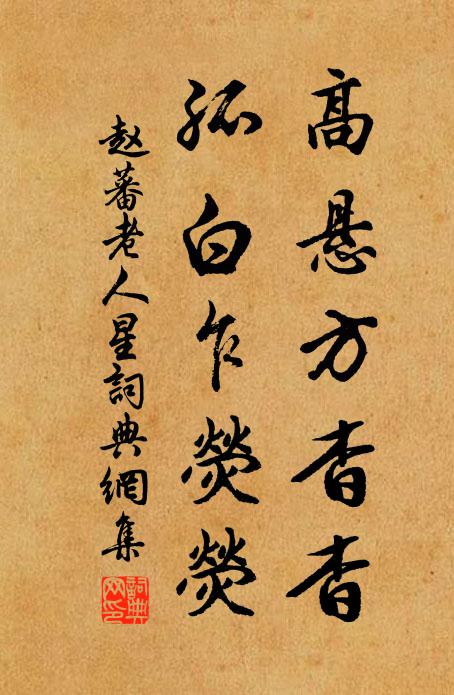 高悬方杳杳
孤白乍熒熒
赵蕃老人星詞典網集
詞典网印